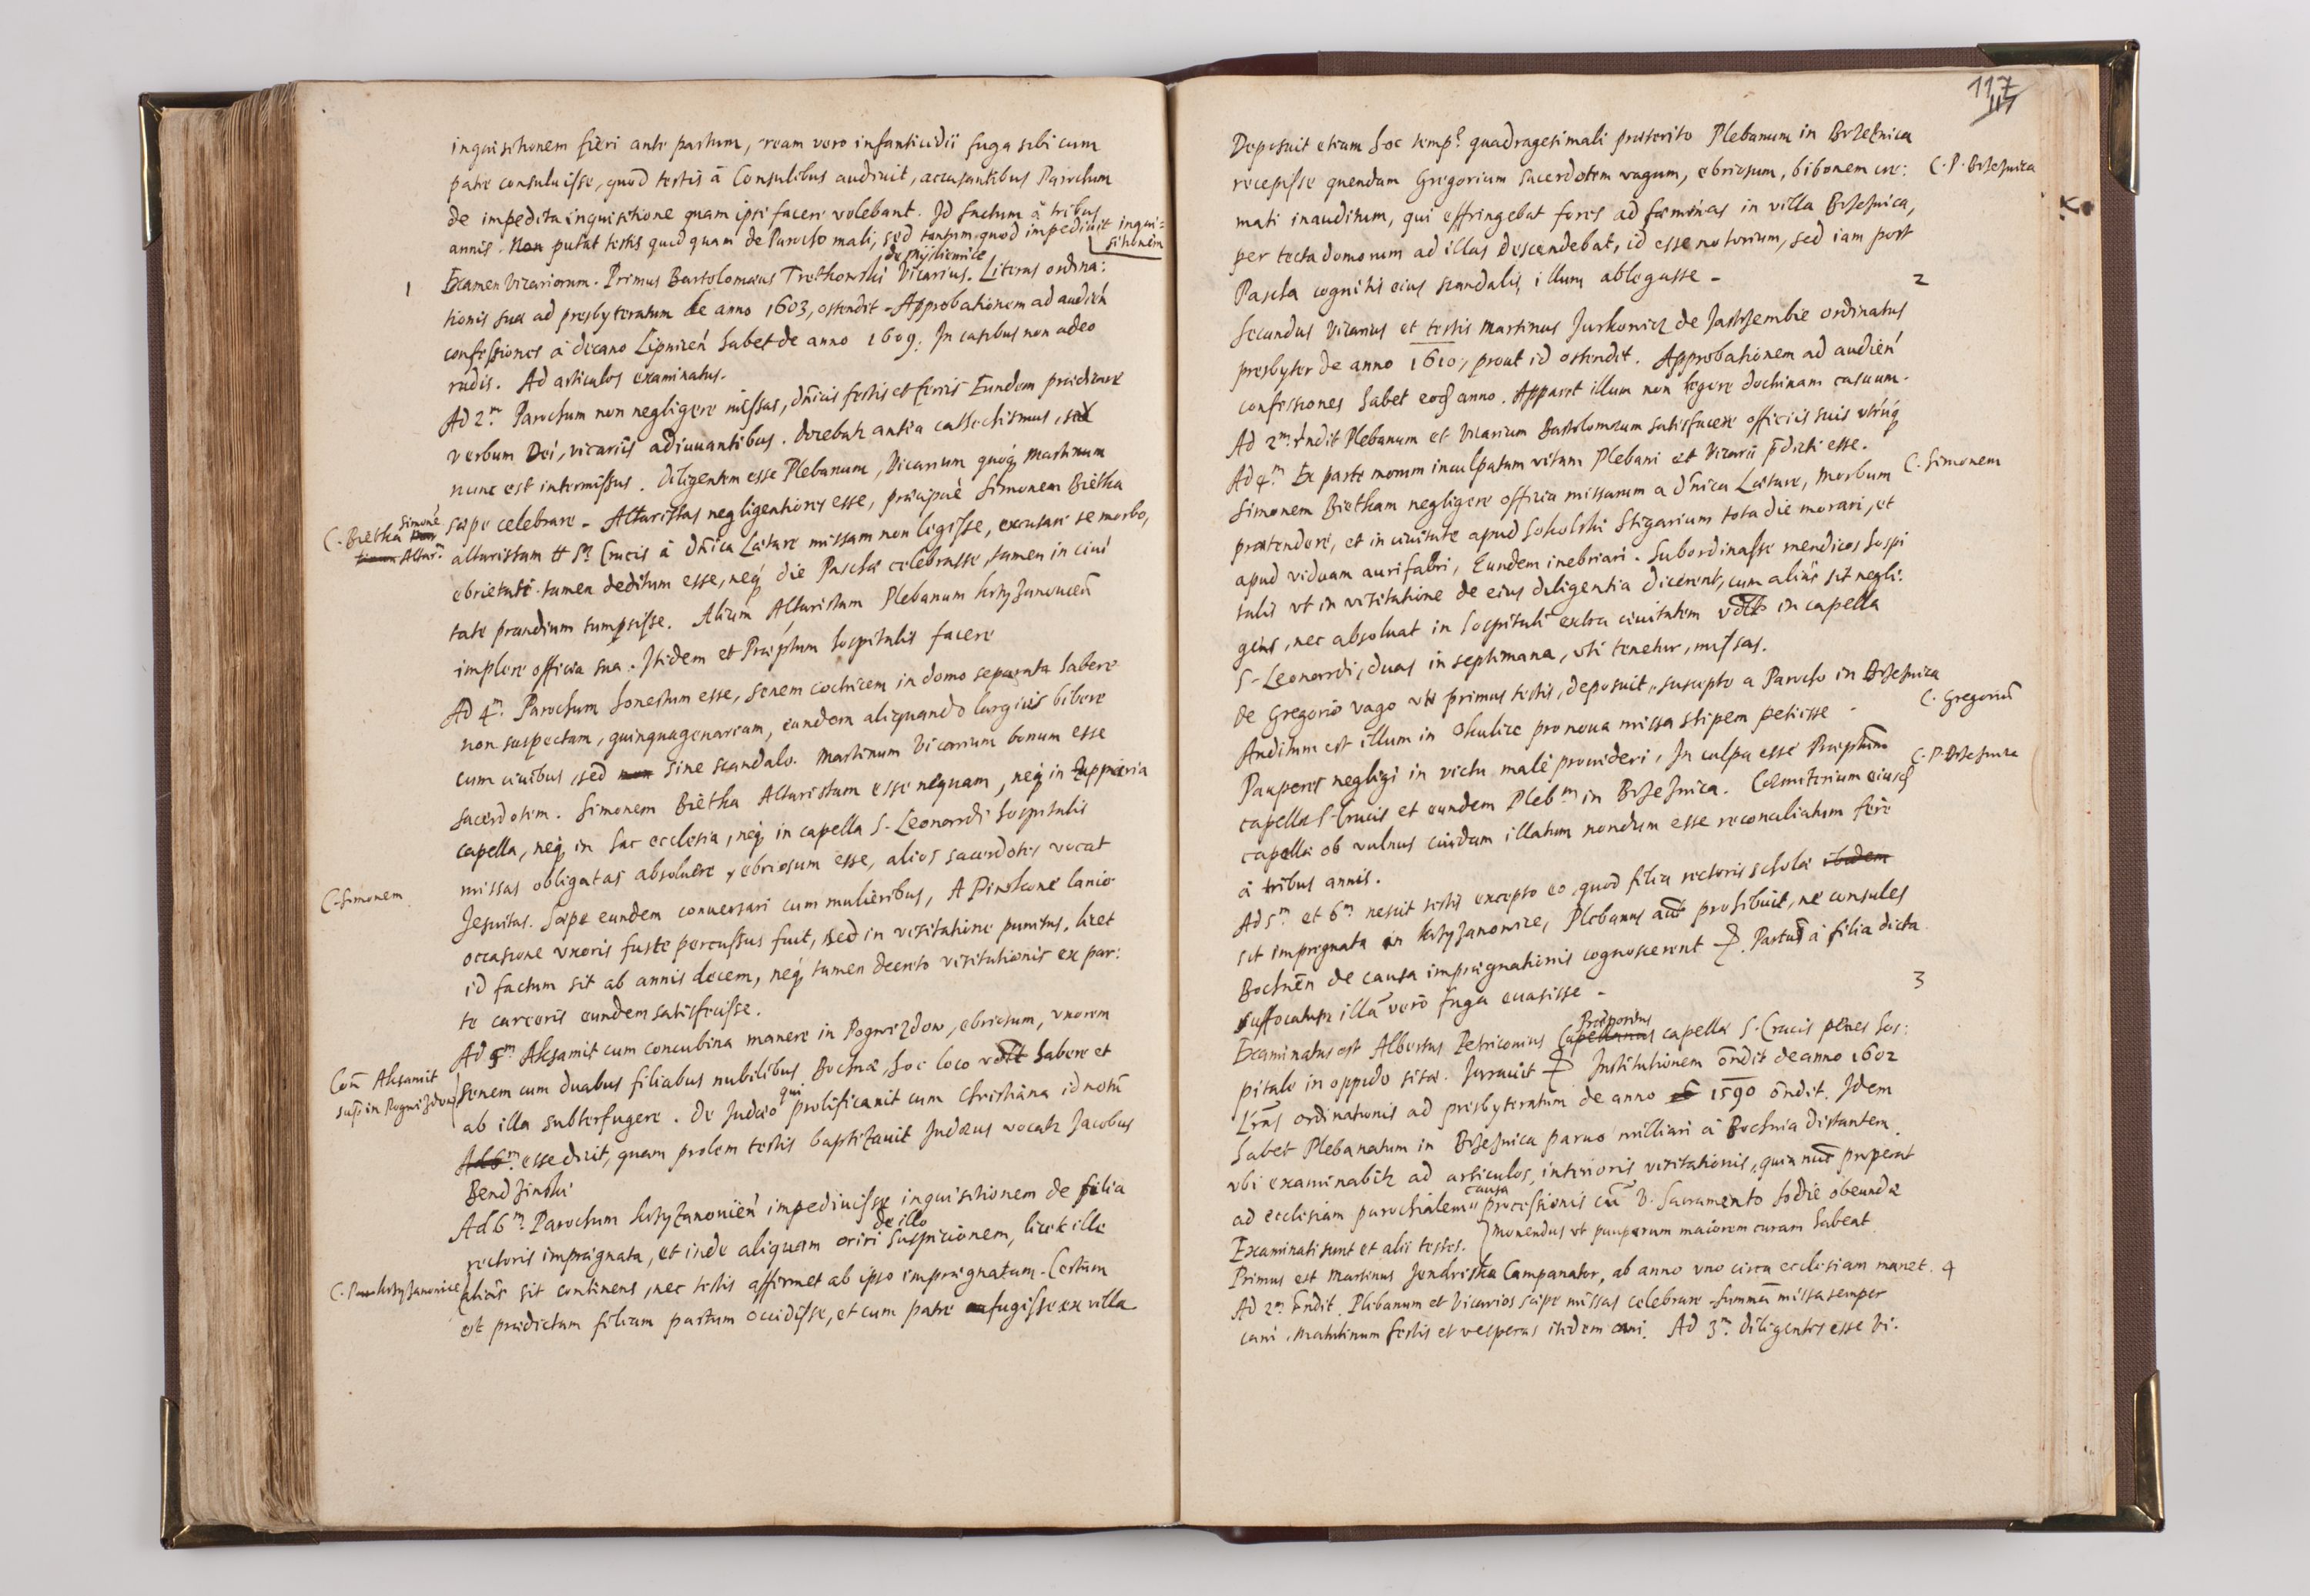 inquisitionem fieri ante partum, ream vero infanticidii fuga sibi cum
patre consuluisse, quod testis à Consulibus audiuit, accusantibus Parochum
de impedita inquisitione quam ipsi facere volebant. Id factum à tribus
annis. Non putat testis quidquam de Parocho mali, sed tantum quod impediuit inqui=
sitionem
de Myslienice
1 Examen Vicariorum. Primus Bartolomæus Tretkowski Vicarius. Literas ordina:
tionis suæ ad presbyteratum de anno 1603, ostendit. Approbationem ad audień
confessiones à decano Lipnicen̄ habet de anno 1609. In casibus non adeo
rudis. Ad articulos examinatus.
Ad 2m. Parochum non negligere missas, dn̄icis festis et ferijs Eundem prædicare
verbum Dei, vicarijs adiuuantibus. Docebatr antea cathechismus, sed
nunc est intermissus. Diligentem esse Plebanum, Vicarium quoq; Martinum
sæpe celebrare. Altaristas negligentiores esse, præcipuè Simonem Bietka
C. Bietka Simonē
Altarm.
altaristam S. Crucis à dn̄ica Lætare missam non legisse, excusare se morbo,
ebrietati tamen deditum esse, neq; die Paschæ celebrasse, tamen in ciui
tate prandium sumpsisse. Alium Altaristam Plebanum krzyżanouicen̄
implere officia sua. Itidem et Præptum hospitalis facere
Ad 4m. Parochum honestum esse, senem coctricem in domo separata habere
non suspectam, quinquagenariam, eundem aliquando largius bibere
cum ciuibus, sed non sine scandalo. Martinum Vicarium bonum esse
sacerdotem. Simonem Bietka Altaristam esse nequam, neq; in Zuppiaria
capella, neq; in hac ecclesia, neq; in capella S. Leonardi hospitalis
missas obligatas absoluere, ebriosum esse, alios sacerdotes vocat
C. Simonem
Jesuitas. Sæpe eundem conuersari cum mulieribus, A Pinokone lanio
occasione vxoris fuste percussus fuit, sed in visitatione punitus, licet
id factum sit ab annis decem, neq; tamen decreto visitationis ex par:
te carceris eundem satisfecisse.
Ad 5m. Aksamit cum concubina manere in Pogwizdow, ebriosum, vxorem
Con̄ Aksamit
sup in Pogwizdow
senem cum duabus filiabus nubilibus Bochnæ hoc loco habere et
ab illa subterfugere. De Judæo qui prolificauit cum Christiana id notū
Ad 6m. esse dicit, quam prolem testis baptizauit Judæus vocatr Jacobus
Bendzinski
Ad 6m. Parochum krzyżanouień impediuisse inquisitionem de filia
rectoris imprægnata, et inde aliquam oriri de illo suspicionem, licet ille
C. P. krzyżanowice
aliàs sit continens, nec testis affirmet ab ipso imprægnatam. Certum
est prædictam filiam partum occidisse, et cum patre aufugisse ex villa
117
Deposuit etiam hoc tempe quadragesimali præterito Plebanum in Brzeznica
recepisse quendam Gregorium sacerdotem vagum, ebriosum, bibonem cre:
C. P. Brzeznica
mati inauditum, qui effringebat fores ad fæminas in villa Brzeznica,
per tecta domorum ad illas descendebat, id esse notorium, sed iam post
Pascha cognitis eius scandalis, illum ablegasse.
2
Secundus Vicarius et testis Martinus Jurkowicz de Jastrzembie ordinatus
presbyter de anno 1610, prout id ostendit. Approbationem ad audień
confessiones habet eod anno. Apparet illum non legere doctrinam casuum.
Ad 2m. rn̄dit Plebanum et Vicarium Bartolomæum satisfacere officijs suis vtrūq;
Ad 4m. Ex parte morum inculpatam vitam Plebani et Vicarii p̄dicti esse.
Simonem Bietkam negligere officia missarum a dn̄ica Lætare, morbum
C. Simonem
prætendere, et in ciuitate apud Sokolski Stigarium tota die morari, et
apud viduam aurifabri, Eundem inebriari. Subordinasse mendicos hospi
talis vt in visitatione de eius diligentia dicerent, cum aliàs sit negli:
gens, nec absoluat in hospitali extra ciuitatem in capella
S. Leonardi, duas in septimana, vti tenetur, missas.
De Gregorio vago vti primus testis, deposuit, suscepto a Parocho in Brzeznica
C. Gregoriū
Auditum est illum in Skulice pro noua missa stipem petiisse.
Pauperes negligi in victu malè prouideri, In culpa esse Præptum
C. P. Brzeznice
capellæ S. Crucis et eundem Plebm in Brzeznica. Cœmiterium eiusd
capellæ ob vulnus cuidam illatum nondum esse reconciliatum ferè
à tribus annis.
Ad 5m. et 6m. nescit testis excepto eo, quod filia rectoris scholæ ibidem
sit impregnata in krzyżanowice, Plebanus aut prohibuit, ne consules
Bochnēn de causa imprægnationis cognoscerent. Partus à filia dicta
suffocatum illā verò fuga euasisse.
3
Examinatus est Albertus Petriconius Capellanus Præpositus capellæ S. Crucis penes hos:
pitale in oppido sitæ. Jurauit. Institutionem on̄dit de anno 1602
Lrās ordinationis ad presbyteratum de anno 1590 on̄dit. Idem
habet Plebanatum in Brzeznica paruo milliari à Bochnia distantem.
vbi examinabitr ad articulos interioris visitationis, quia nūc properat
ad ecclesiam parochialem causa processionis cū V. Sacramento hodie obeundæ
Examinati sunt et alii testes. Monendus vt pauperum maiorem curam habeat
Primus est Martinus Jendriska Campanator, ab anno vno circa ecclesiam manet. 4
Ad 2m. rn̄dit. Plebanum et Vicarios sæpe missas celebrare. Summā missā semper
cani, Matutinum festis et vesperas itidem cani. Ad 3m. diligentes esse Vi.